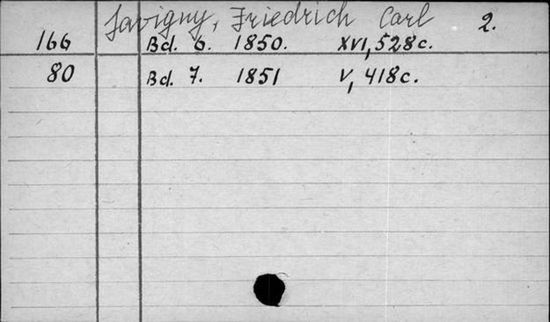 Savigny, Friedrich Carl 2.
166 Bd. 6. 1850. XVI, 528c.
80 Bd. 7. 1851 V, 418c.